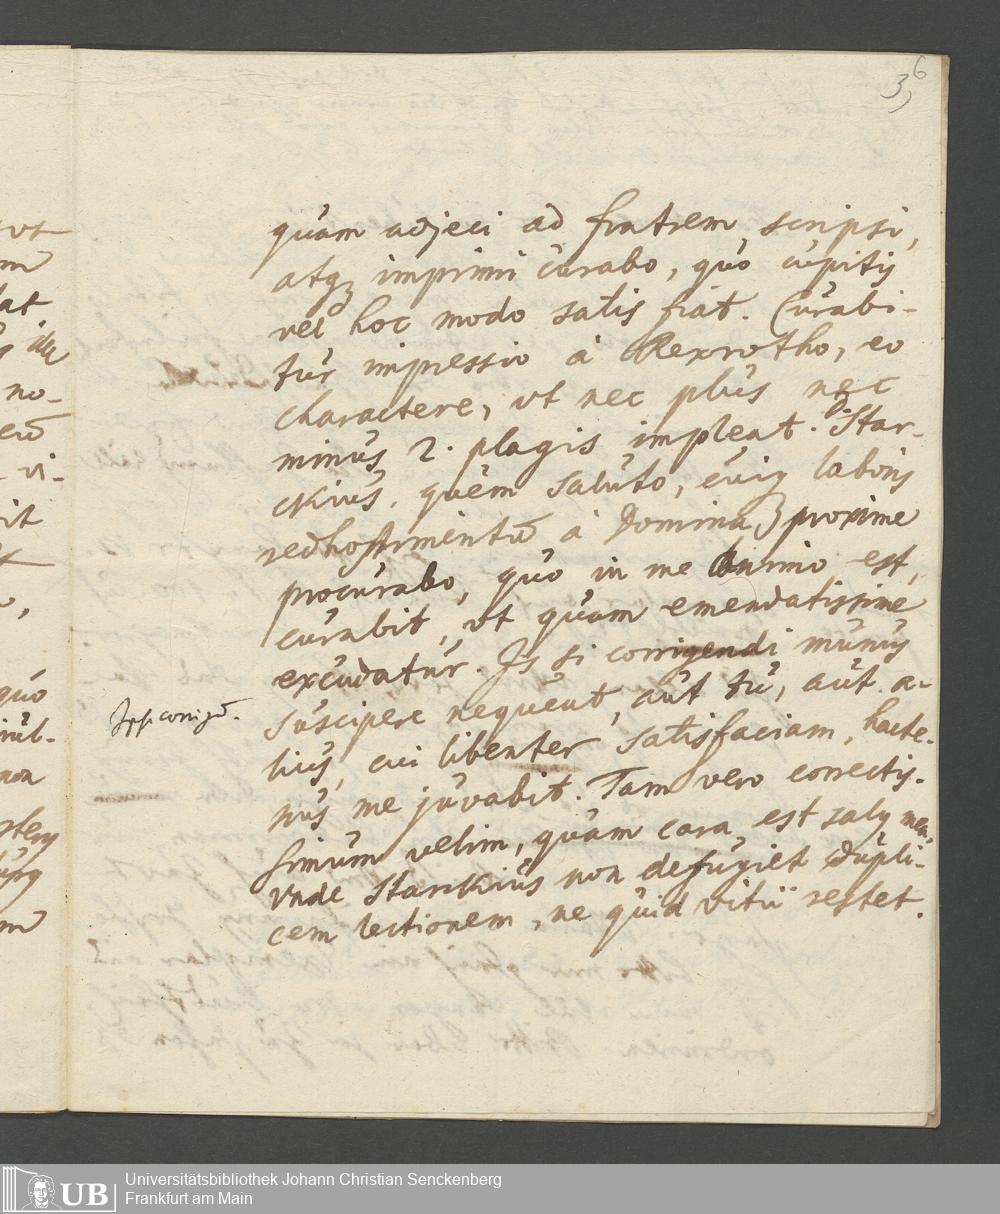 6
3,
quam adjeci ad fratrem scripsi,
atq; imprimi curabo, quo cupitis
vel hoc modo satis fiat. Curabi-
tur impressio à Rexrotho, eo
charactere, ut nec plus nec
minus 2. plagis impleat. Star-
ckius, quem saluto, cuig laboris
redhostimentū à Domina proxime
procurabo, quo in me animo est,
curabit, ut quam emendatissime
excudatur. Is si corrigendi munus
suscipere nequeut, aut tu, aut a-
lius, cui libenter satisfaciam, hacte-
nus me juvabit. Tam vero correctis-
simum velim, quam cara est salus mea,
Unde Starckius non defugiet dupli-
cem lectionem, ne quid vitii restet.
vt
m
lat
no-
vi-
it
quo
non
m
Universitätsbibliothek Johann Christian Senckenberg
Frankfurt am Main
UB